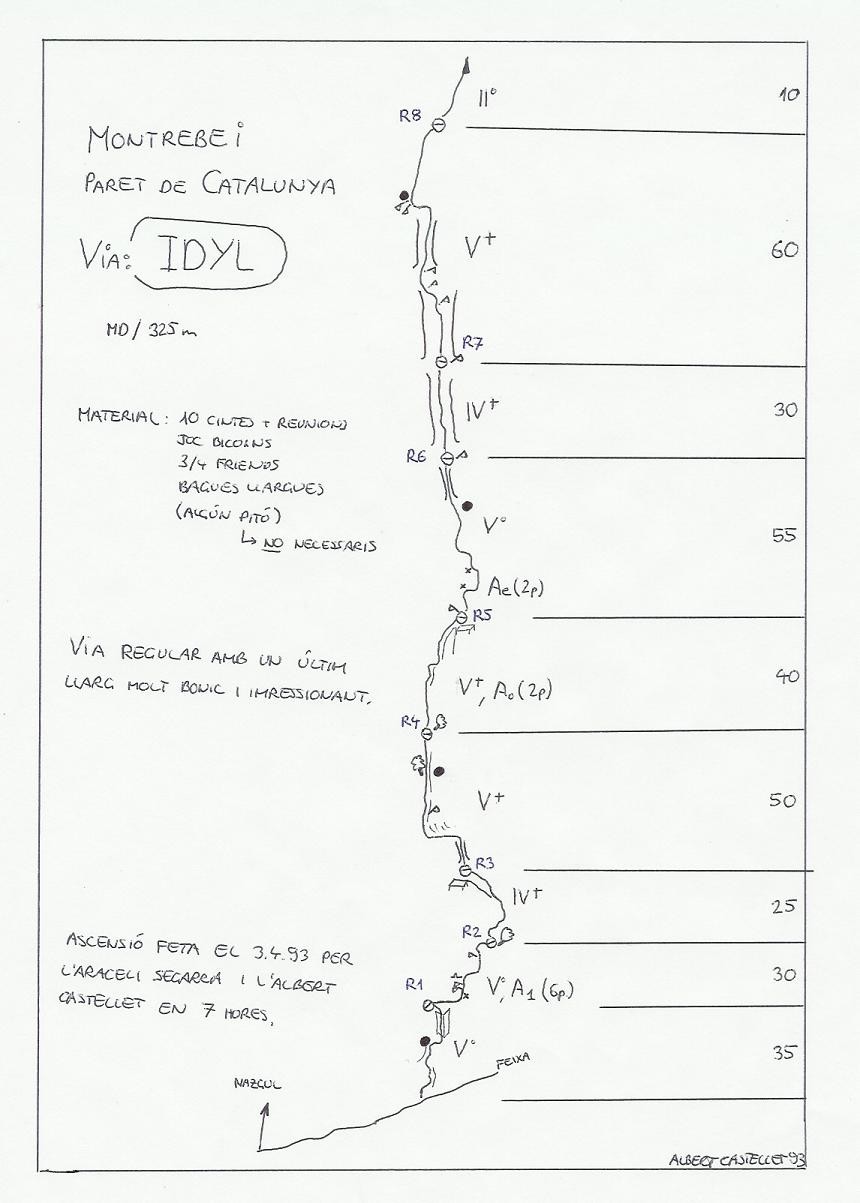 MONTREBEI
PARET DE CATALUNYA
VIA: IDYL
MD / 325 m
MATERIAL: 10 CINTES + REUNIONS
JOC BICOINS
3/4 FRIENDS
BAGUES LLARGUES
(ALGÚN PITÓ)
↳ NO NECESSARIS
VIA REGULAR AMB UN ÚLTIM
LLARG MOLT BONIC I IMPRESSIONANT.
ASCENSIÓ FETA EL 3.4.93 PER
L'ARACELI SEGARRA I L'ALBERT
CASTELLET EN 7 HORES.
II° 10
R8
V+ 60
R7
IV+ 30
R6
V° 55
Ae(2p)
R5
V+, A0(2p) 40
R4
V+ 50
R3
IV+ 25
R2
V°, A1(6p) 30
R1
V° 35
FEIXA
NAZGUL
ALBERT CASTELLET 93